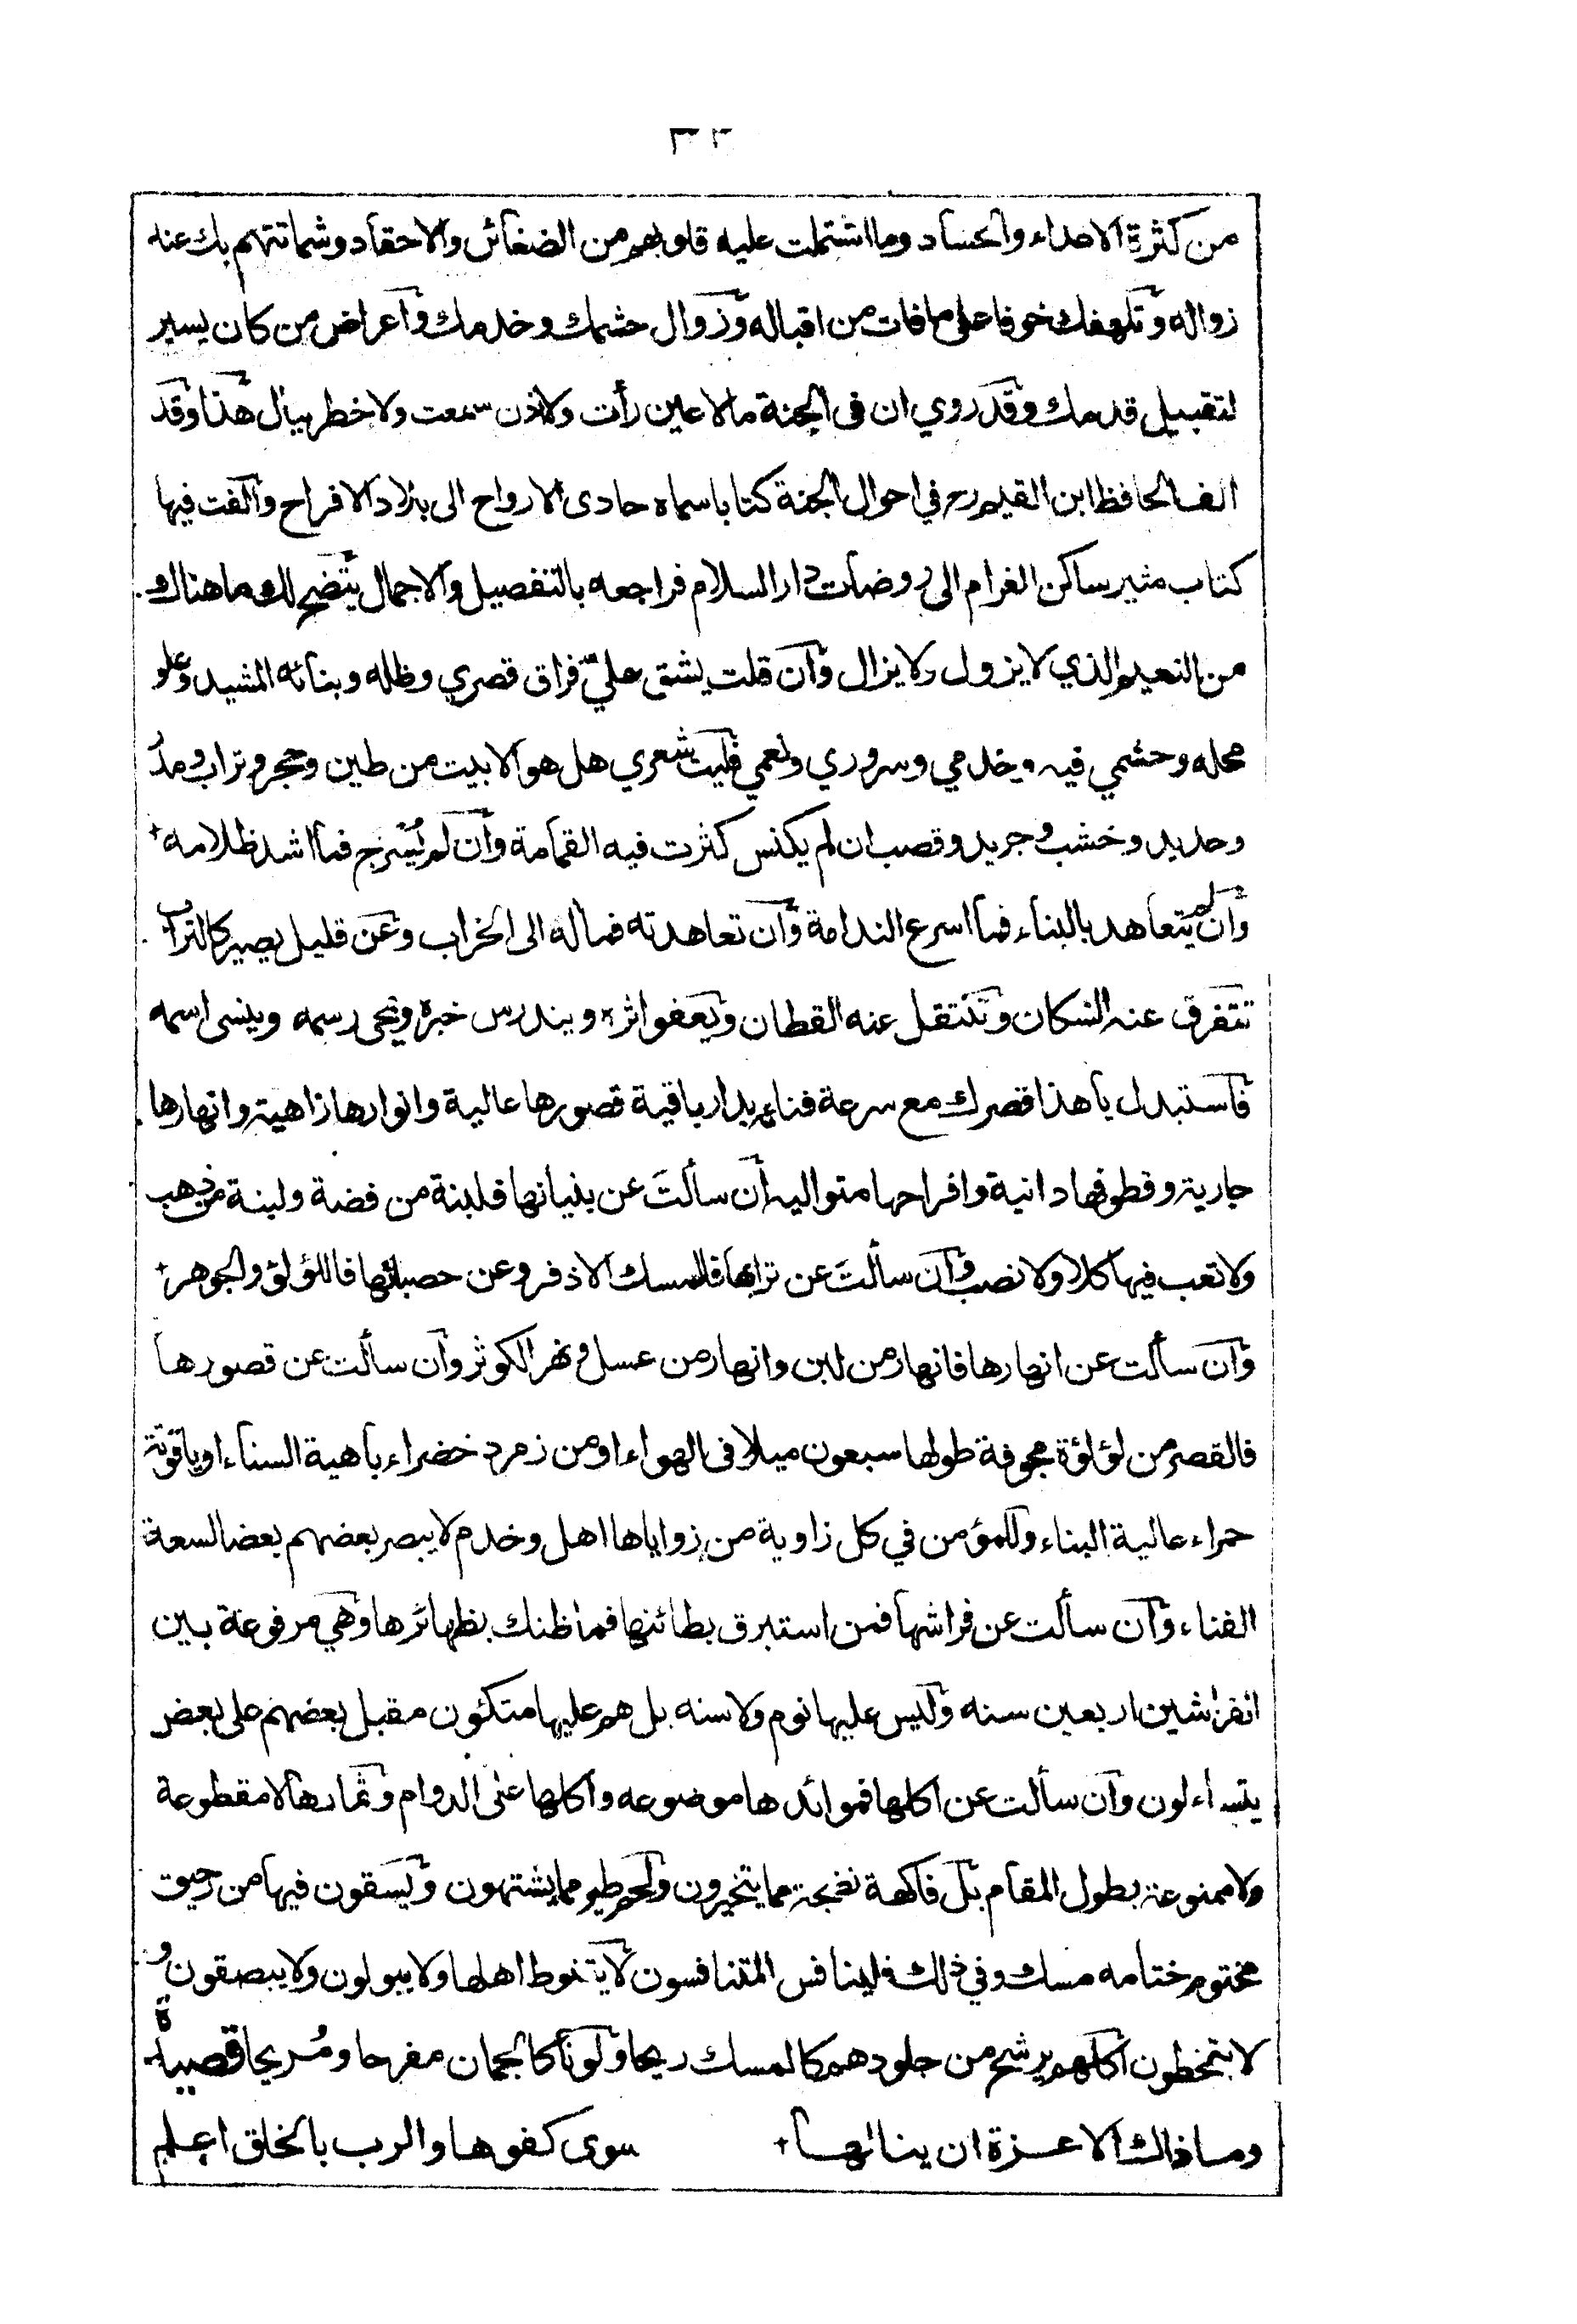 من كثرة الاعداء والحساد وما اشتملت عليه قلوبهم من الضغائن والاحقاد وشماتتهم بك عند
زواله وتلهفك خوفا على ما فات من اقباله وزوال حشمك وخدمك واعراض من كان يسير
لتقبيل قدمك وقد روي ان فى الجنة مالا عين رأت ولا اذن سمعت ولا خطر ببال هذا وقد
الف الحافظ ابن القيم رح في احوال الجنة كتابا سماه حادى الارواح الى بلاد الافراح والفت فيها
كتاب مثير ساكن الغرام الى روضات دار السلام فراجعه بالتفصيل والاجمال يتضح لك ما هناك
من النعيم الذي لا يزول ولا يزال وان قلت يشق عليّ فراق قصري وظله وبنائه المشيد وعلو
محله وحشمي فيه وخدمي وسروري ونعمي فليت شعري هل هو الا بيت من طين وحجر وتراب ومدر
وحديد وخشب وجريد وقصب ان لم يكنس كثرت فيه القمامة وان لم يُسْرج فما اشد ظلامه
وان لم يتعاهد بالبناء فما اسرع الندامة وان تعاهدته فماله الى الخراب وعن قليل يصير كالتراب
تتفرق عنه السكان وتنتقل عنه القطان ويعفو اثره ويندرس خبره ويمحى رسمه وينسى اسمه
فاستبدل يا هذا قصرك مع سرعة فنائه بدار باقية قصورها عالية وانوارها زاهية وانهارها
جارية وقطوفها دانية وافراحها متواليه ان سألتَ عن بنيانها فلبنة من فضة ولبنة من ذهب
ولا تعب فيها كلا ولا نصب وان سألتَ عن ترابها فالمسك الاذفر وعن حصبائها فاللؤلؤ والجوهر
وان سألت عن انهارها فانهار من لبن وانهار من عسل ونهر الكوثر وان سألت عن قصورها
فالقصر من لؤلؤة مجوفة طولها سبعون ميلا فى الهواء او من زمرد خضراء باهية السناء او ياقوتة
حمراء عالية البناء وللمؤمن في كل زاوية من زواياها اهل وخدم لا يبصر بعضهم بعضا لسعة
الفناء وان سألت عن فراشها فمن استبرق بطائنها فما ظنك بظهائرها وهي مرفوعة بين
الفراشين اربعين سنه وليس عليها نوم ولا سنه بل هم عليها متكئون مقبل بعضهم على بعض
يتساءلون وان سألت عن اكلها فموائدها موضوعه واكلها على الدوام وثمارها لا مقطوعة
ولا ممنوعة بطول المقام بل فاكهة نضيجة مما يتخيرون ولحم طير مما يشتهون ويسقون فيها من رحيق
مختوم ختامه مسك وفي ذلك فليتنافس المتنافسون لا يتغوط اهلها ولا يبولون ولا يبصقون و
لا يتمخطون اكلهم يرشح من جلودهم كالمسك ريحا ولونا كالجمان مفرحا ومُريحا قصيدة
وما ذاك الا عزة ان ينالها سوى كفوها والرب بالخلق اعلم